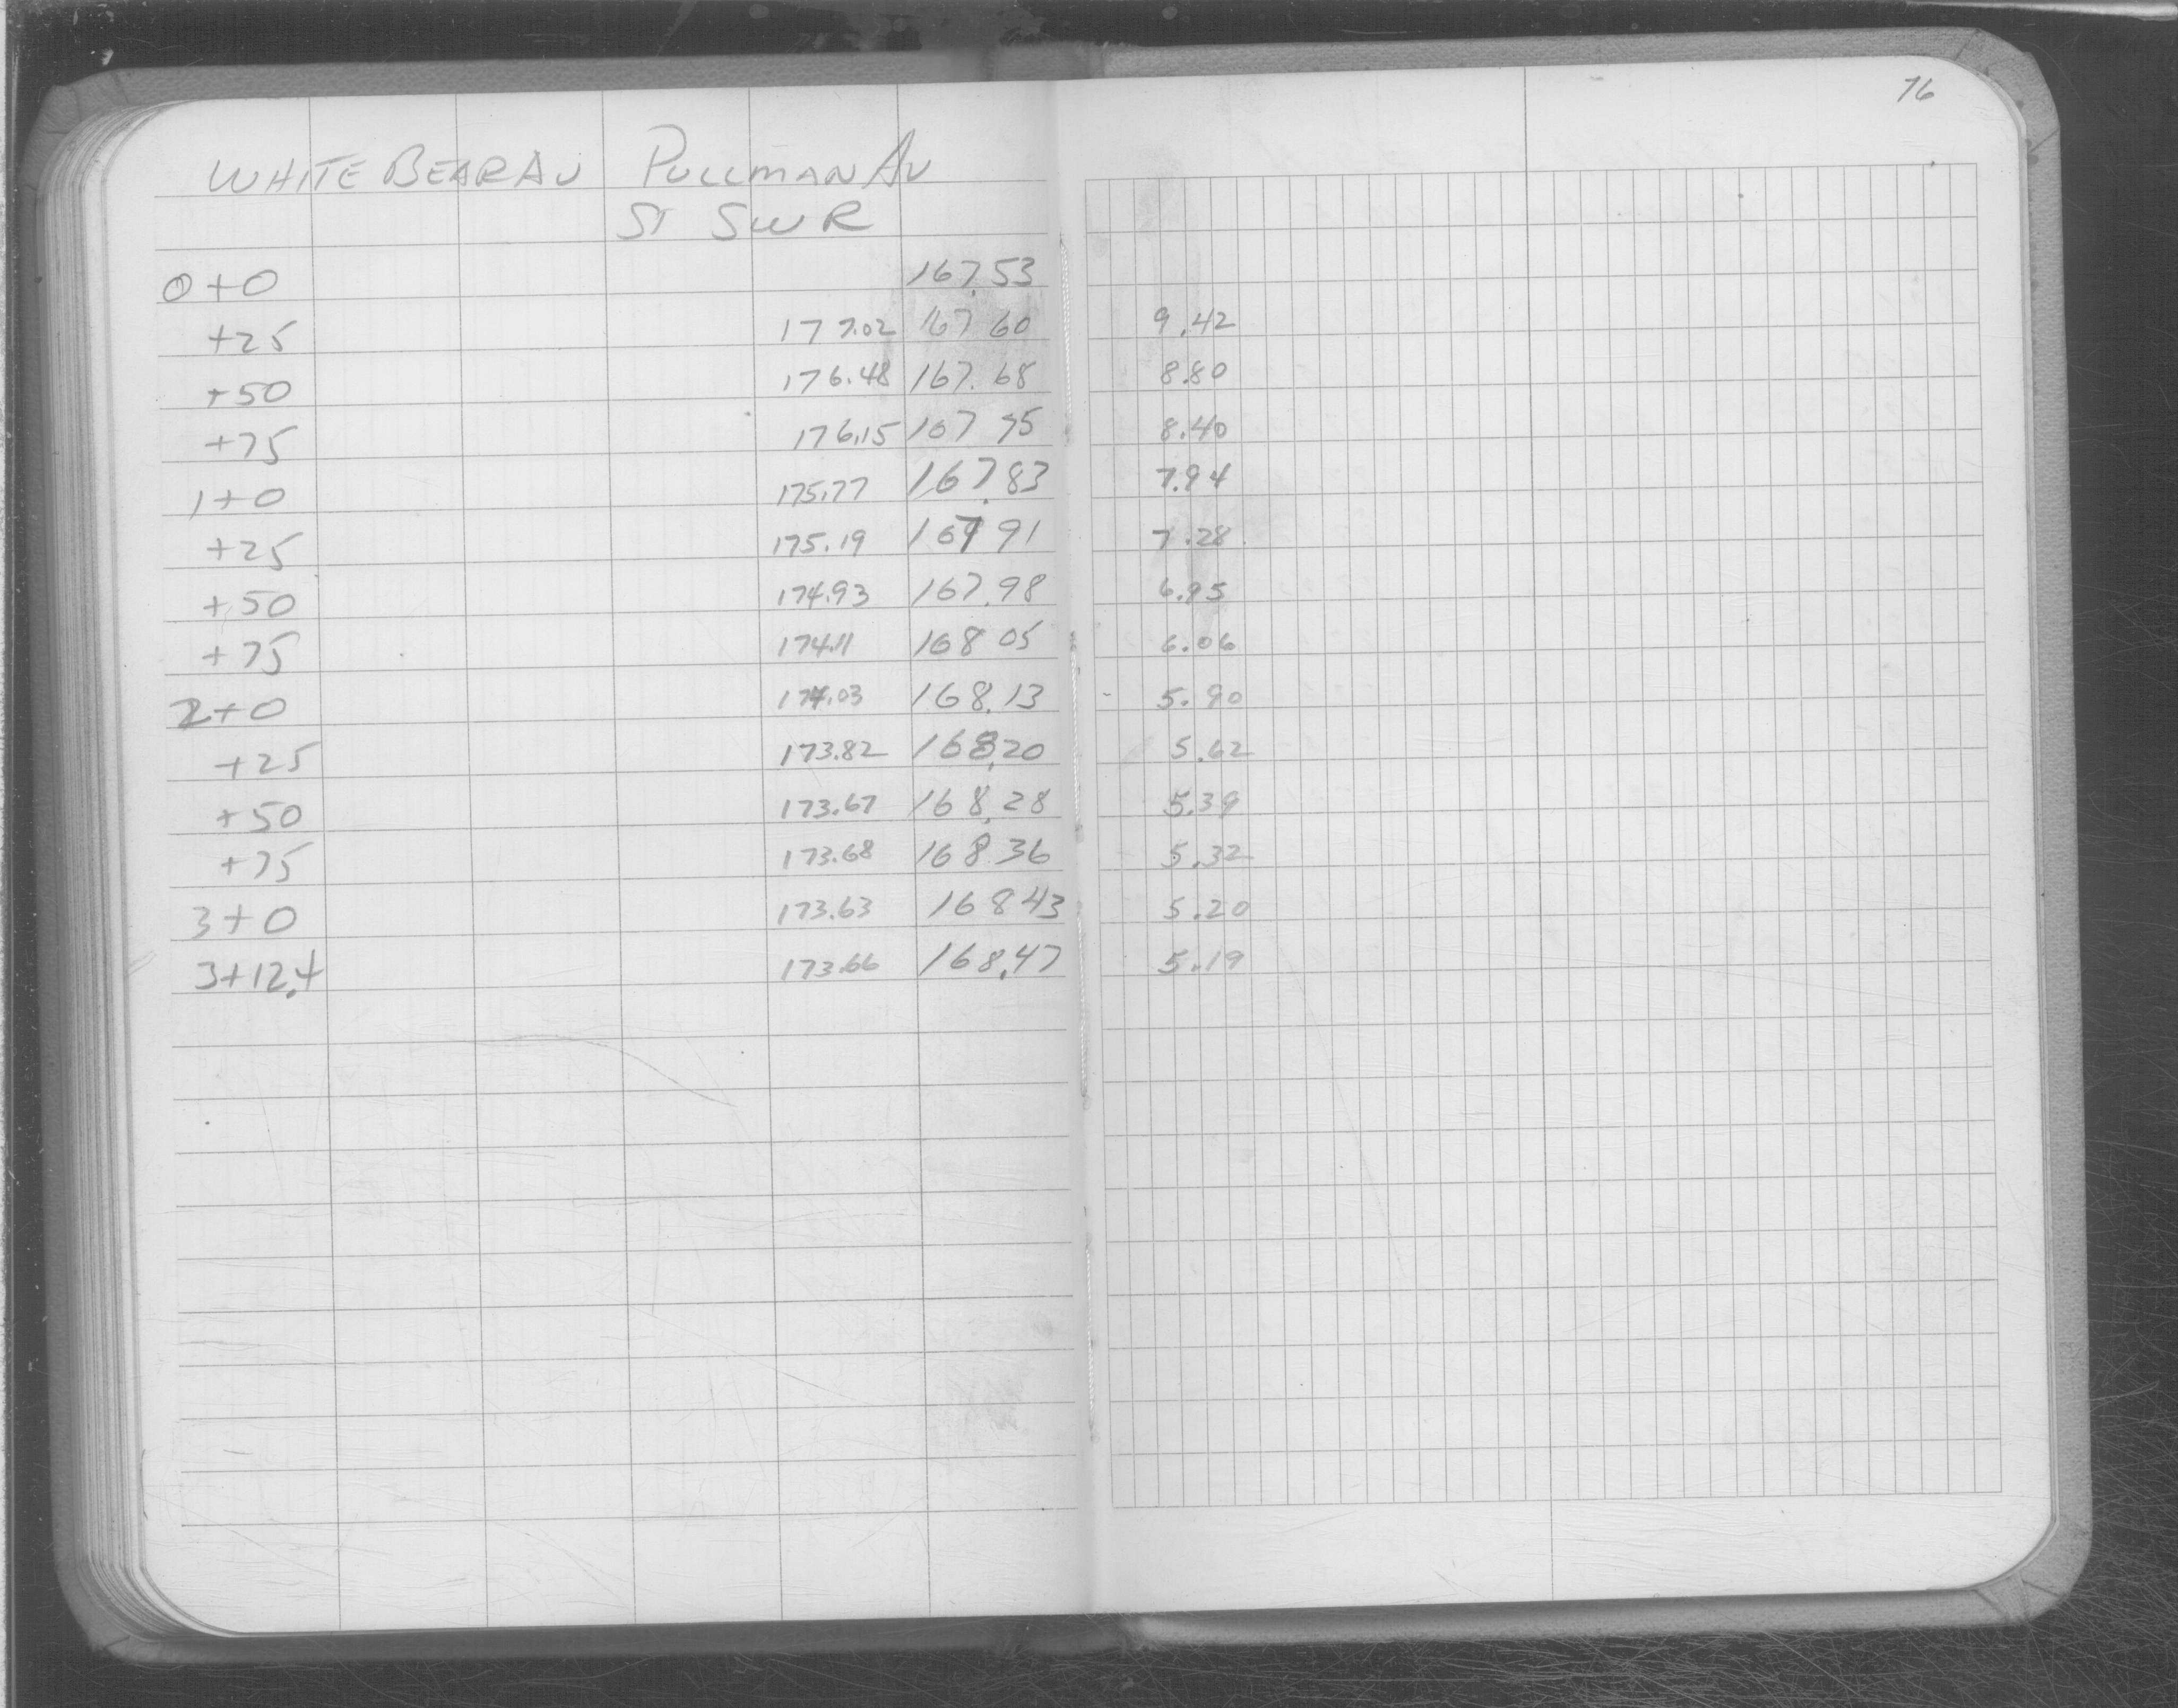 76
WHITE BEAR AV PULLMAN AV
ST SWR
0+0 167.53
+25 177.02 167 60 9.42
+50 176.48 167.68 8.80
+75 176.15 167 75 8.40
1+0 175.77 167.83 7.94
+25 175.19 167 91 7.28
+50 174.93 167.98 6.95
+75 174.11 168 05 6.06
2+0 174.03 168.13 5.90
+25 173.82 168.20 5.62
+50 173.67 168.28 5.39
+75 173.68 168.36 5.32
3+0 173.63 168 43 5.20
3+12.4 173.66 168.47 5.19